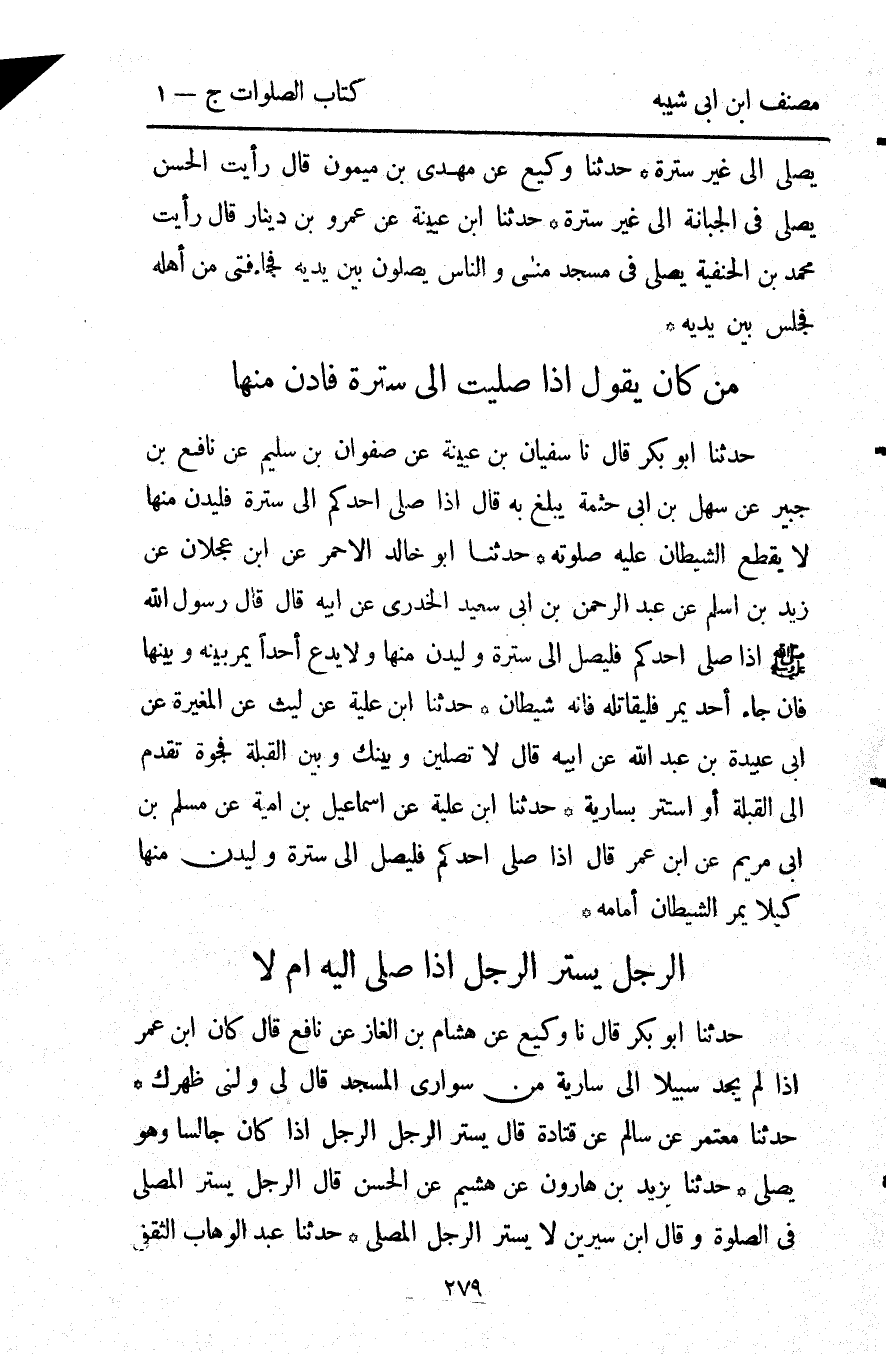 مصنف ابن ابى شيبه كتاب الصلوات ج — ١
يصلى الى غير سترة * حدثنا وكيع عن مهدى بن ميمون قال رأيت الحسن
يصلى فى الجبانة الى غير سترة * حدثنا ابن عيينة عن عمرو بن دينار قال رأيت
محمد بن الحنفية يصلى فى مسجد منى و الناس يصلون بين يديه فجاء فتى من أهله
فجلس بين يديه *
من كان يقول اذا صليت الى سترة فادن منها
حدثنا ابو بكر قال نا سفيان بن عيينة عن صفوان بن سليم عن نافع بن
جبير عن سهل بن ابى حثمة يبلغ به قال اذا صلى احدكم الى سترة فليدن منها
لا يقطع الشيطان عليه صلوته * حدثنا ابو خالد الاحمر عن ابن عجلان عن
زيد بن اسلم عن عبد الرحمن بن ابى سعيد الخدرى عن ابيه قال قال رسول الله
ﷺ اذا صلى احدكم فليصل الى سترة و ليدن منها و لايدع أحداً يمر بينه و بينها
فان جاء أحد يمر فليقاتله فانه شيطان * حدثنا ابن علية عن ليث عن المغيرة عن
ابى عبيدة بن عبد الله عن ابيه قال لا تصلين و بينك و بين القبلة فجوة تقدم
الى القبلة أو استتر بسارية * حدثنا ابن علية عن اسماعيل بن امية عن مسلم بن
ابى مريم عن ابن عمر قال اذا صلى احدكم فليصل الى سترة و ليدن منها
كيلا يمر الشيطان أمامه *
الرجل يستر الرجل اذا صلى اليه ام لا
حدثنا ابو بكر قال نا وكيع عن هشام بن الغاز عن نافع قال كان ابن عمر
اذا لم يجد سبيلا الى سارية من سوارى المسجد قال لى و لنى ظهرك *
حدثنا معتمر عن سالم عن قتادة قال يستر الرجل الرجل اذا كان جالسا وهو
يصلى * حدثنا يزيد بن هارون عن هشيم عن الحسن قال الرجل يستر المصلى
فى الصلوة و قال ابن سيرين لا يستر الرجل المصلى * حدثنا عبد الوهاب الثقفى
٢٧٩